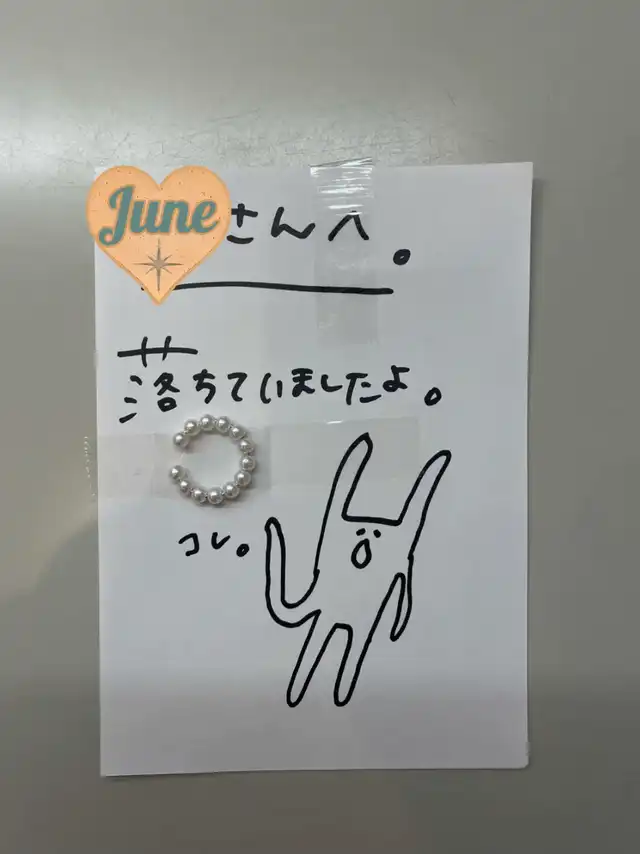 June さんへ。
落ちていましたよ。
コレ。